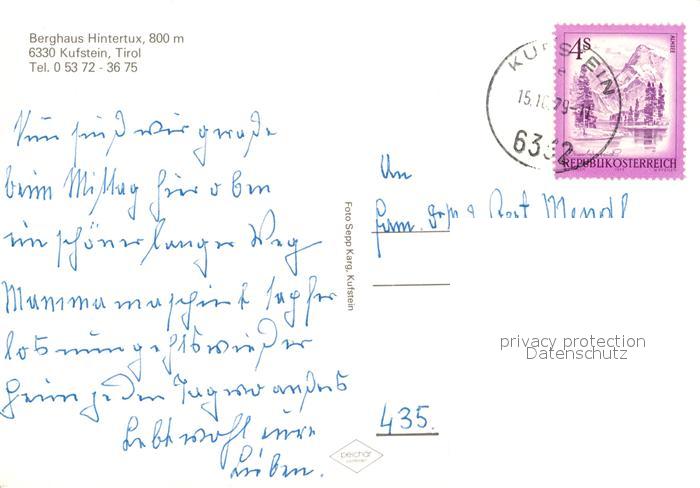 Berghaus Hintertux, 800 m
6330 Kufstein, Tirol
Tel. 0 53 72 - 36 75
4s
ALMSEE
REPUBLIK ÖSTERREICH
KUFSTEIN
15.10.79
6332
Nun sind wir gerade
beim Mittag hier oben
ein schöner langer Weg
Mamma marschiert tapfer
los nun gehts wieder
heim jeden Tag wo anders
Lebt wohl eure
Lieben.
An
Fam.
435.
Foto Sepp Karg, Kufstein
privacy protection
Datenschutz